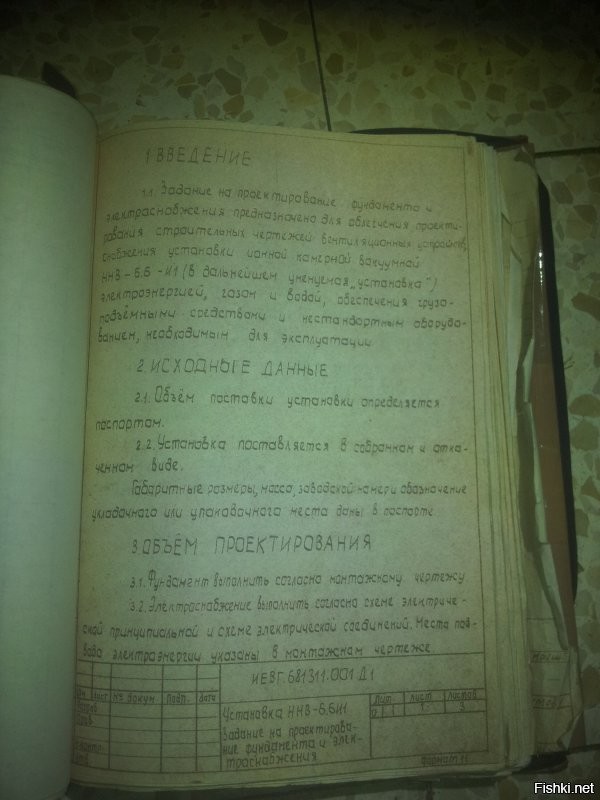 1 ВВЕДЕНИЕ
1.1. Задание на проектирование фундамента и
электраснабжения предназначено для облегчения проекти-
рования строительных чертежей вентиляционных устройств,
снабжения установки ионной камерной вакуумной
ННВ-6.6-И1 (в дальнейшем "установка")
электроэнергией, газом и водой, обеспечения грузо-
подъемными средствами и нестандартным оборудо-
ванием, необходимым для эксплуатации
2. ИСХОДНЫЕ ДАННЫЕ
2.1. Объём поставки установки определяется
паспортом.
2.2. Установка поставляется в собранном и отка-
ченном виде.
Габаритные размеры, масса, заводской номер и обозначение
укладочного или упаковочного места даны в паспорте
3. ОБЪЁМ ПРОЕКТИРОВАНИЯ
3.1. Фундамент выполнить согласно монтажному чертежу
3.2. Электраснабжение выполнить согласно схеме электриче-
ской принципиальной и схеме электрической соединений. Места под-
вода электроэнергии указаны в монтажном чертеже
ИЕВГ.681311.001 Д1
Изм Лист № докум Подп. Дата
Установка ННВ-6,6И1
Задание на проектирова-
ние фундамента и элек-
траснабжения
Лит. Лист Листов
1 3
Формат 11
Fishki.net